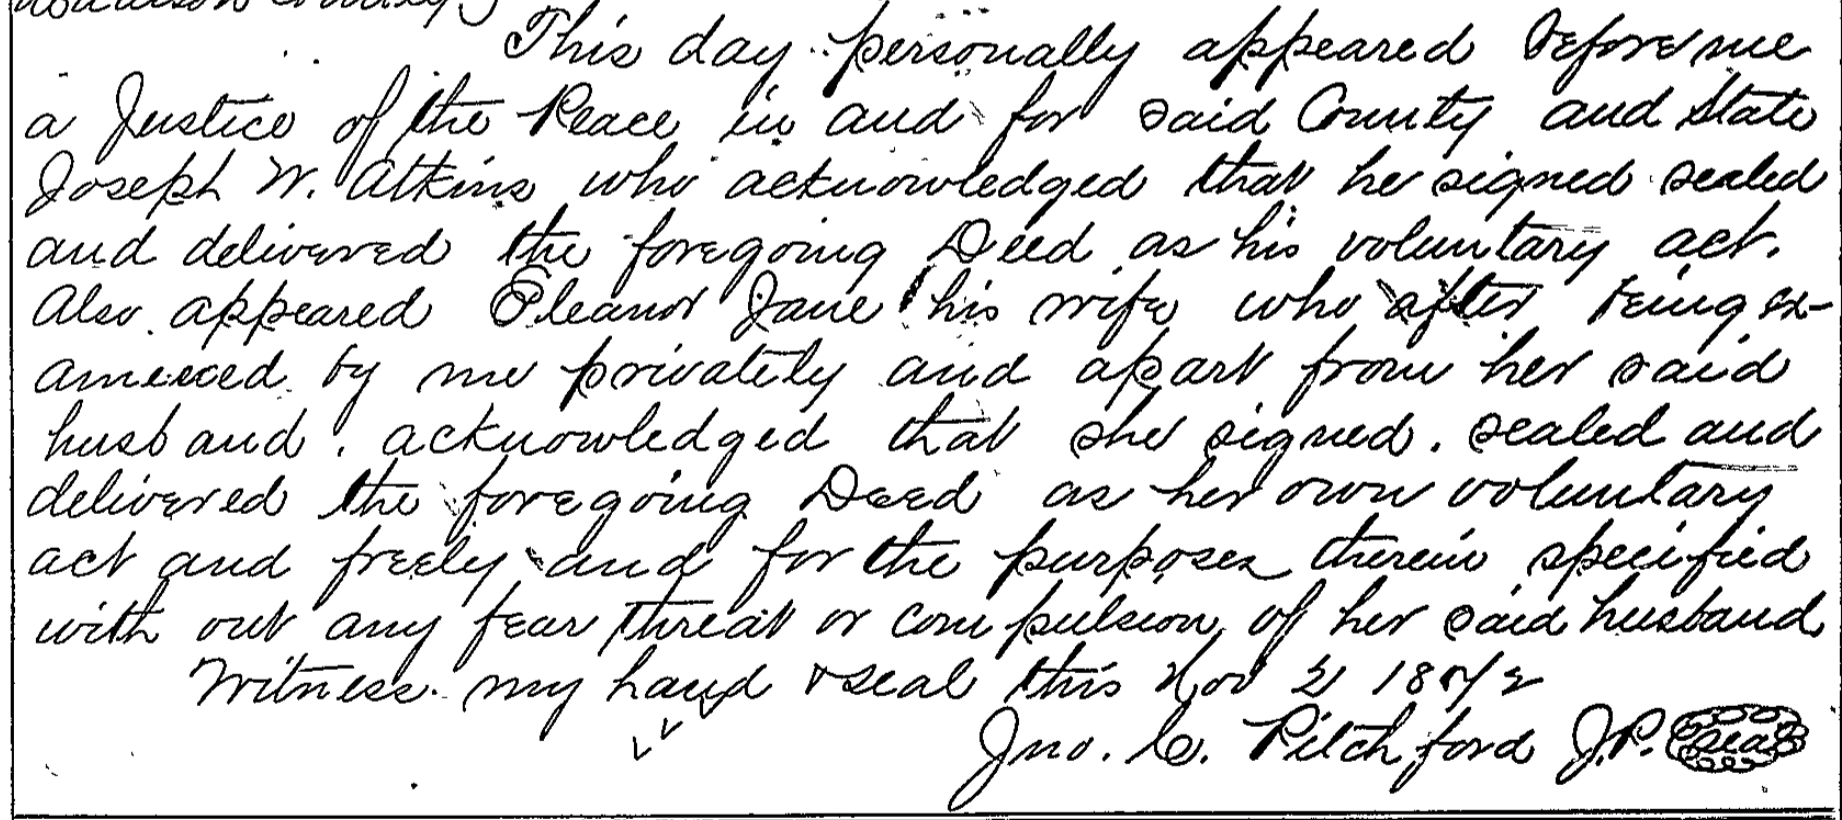 This day personally appeared before me
a Justice of the Peace in and for said County and State
Joseph W. Atkins who acknowledged that he signed sealed
and delivered the foregoing Deed as his voluntary act.
Also appeared Eleanor Jane his wife who after being ex-
amened by me privately and apart from her said
husband. acknowledged that she signed. sealed and
delivered the foregoing Deed as her own voluntary
act and freely and for the purposes therein specified
with out any fear threat or compulsion of her said husband
Witness my hand & seal this Nov 2 1872
Jno. C. Pitchford J.P. Seal